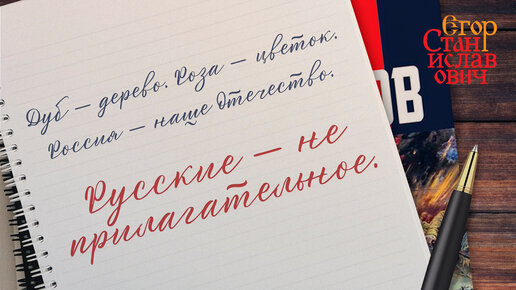 Дуб – дерево. Роза – цветок.
Россия – наше Отечество.
Русские – не
прилагательное.
ОВ
Егор
Стан
ислав
ович